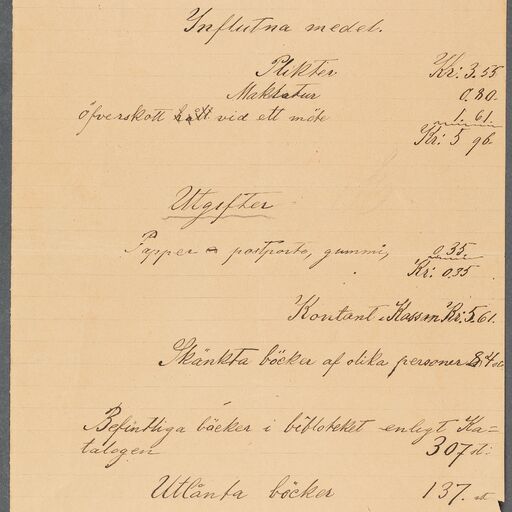 Influtna medel.
Plikter Kr: 3.55
Makulatur 0.80
Öfverskott vid ett möte 1.61
Kr: 5 96
Utgifter
Papper postporto, gummi, 0.35
Kr: 0.35
Kontant i Kassan Kr: 5.61.
Skänkta böcker af olika personer 84 st
Befintliga böcker i biblioteket enligt Ka=
talogen 307 st:
Utlånta böcker 137. st